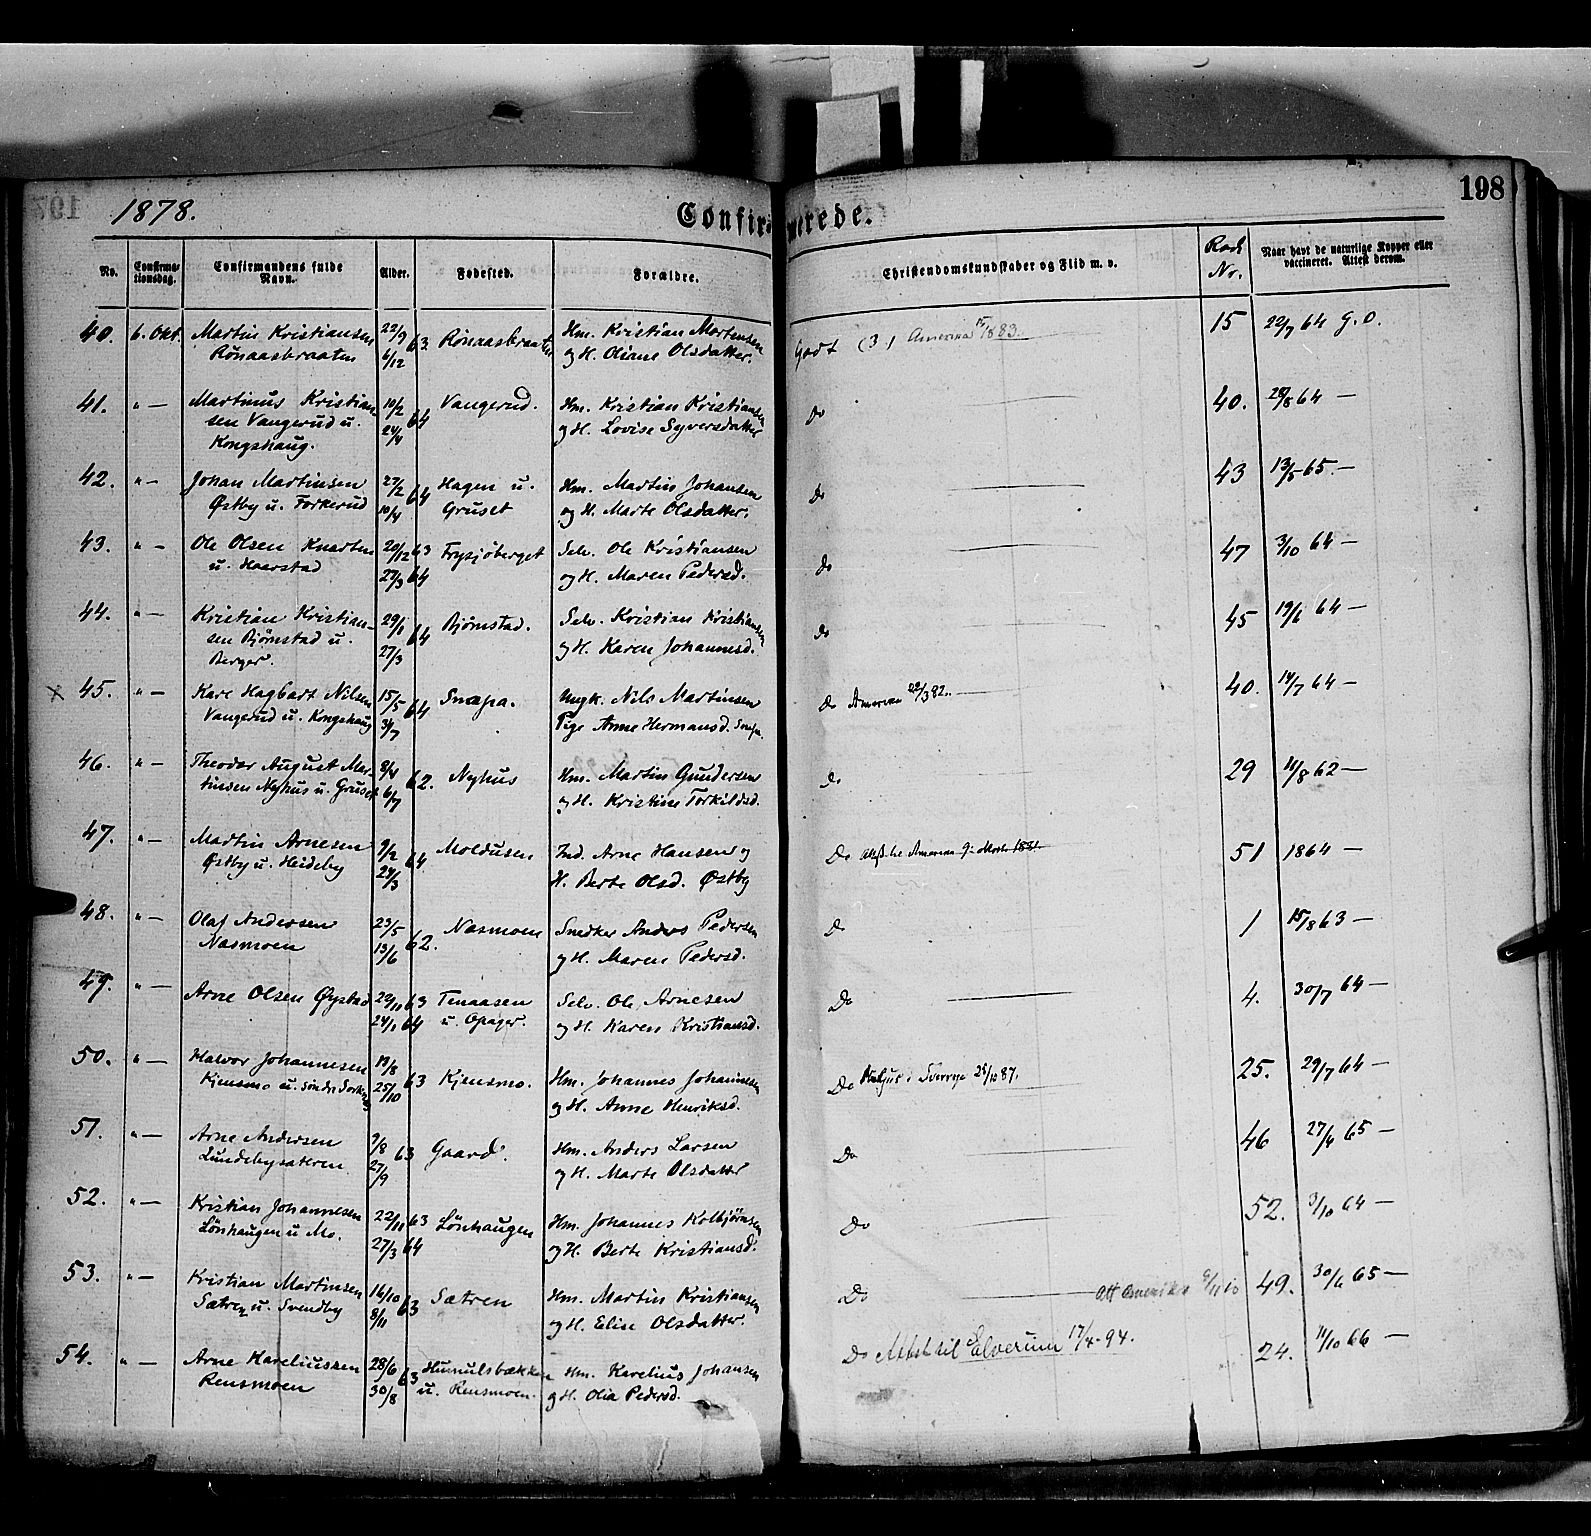 1878.
Confirmerede.
198
No.
Confirma-
tionsdag.
Confirmandens fulde
Navn.
Alder.
Fødested.
Forældre.
Christendomskundskaber og Flid m. v.
Rode
Nr.
Naar havt de naturlige Kopper eller
vaccineret. Attest derom.
40. 6. Okt. Martin Kristiansen 22/9 63 Rønaasbraaten Hm. Kristian Mortensen Godt (3) Amerika 1883. 15 22/7 64 G.O.
Rønaasbraaten 6/12 og H. Oliane Olsdatter.
41. " — Martinus Kristian- 10/2 64 Vangerud. Hm. Kristian Kristiansen Do 40. 28/8 64 —
sen Vangerud u. 24/4 og H. Lovise Syversdatter
Kongshaug.
42. " — Johan Martinsen 27/2 64 Hagen u. Hm. Martin Johansen Do 43 13/5 65. —
Østby u. Torkerud 10/4 Gruset og H. Marte Olsdatter.
43. " — Ole Olsen Knarten 20/12 63 Frysjøberget Selv. Ole Kristiansen Do 47 3/10 64 —
u. Haarstad 27/3 64 og H. Maren Pedersd.
44. " — Kristian Kristian- 29/1 64 Bjørnstad. Selv. Kristian Kristiansen Do 45 19/6 64 —
sen Bjørnstad u. 27/3 og H. Karen Johannesd.
Berger.
x 45. " — Karl Hagbart Nilsen 15/5 64 Snapa. Ungk. Nils Martinsen Do Amerika 22/3 82. 40. 14/7 64 —
Vangerud u. Kongshaug 3/7 Pige Anne Hermansd.
46. " — Theodor August Mar- 8/4 62. Nyhus Hm. Martin Gundersen Do 29 11/8 62 —
tinsen Nyhus u. Gruset 6/7 og H. Kristine Torkildsd.
47. " — Martin Arnesen 9/2 64 Moldusen Ind. Arne Hansen og Do Amerika 1881. 51 1864 —
Østby u. Heideby 27/3 H. Berte Olsd. Østby
48. " — Olaf Andersen 23/5 62. Nasmoen Snedker Anders Pedersen Do 1 15/8 63 —
Nasmoen 13/6 og H. Maren Pedersd.
49. " — Arne Olsen Øystad 22/10 63 Tenaasen Selv. Ole Arnesen Do 4. 30/7 64 —
24/1 64 u. Opager. og H. Karen Kristiansd.
50. " — Halvor Johannesen 13/8 63 Kjensmo. Hm. Johannes Johannesen Do i Sverrige 25/10 87. 25. 29/7 64 —
Kjensmo u. 25/10 og H. Anne Henriksd.
51. " — Arne Andersen 9/8 63 Gaard. Hm. Anders Larsen Do 46 27/4 65 —
Lundebysætren 27/9 og H. Marte Olsdatter
52. " — Kristian Johannesen 22/11 63 Lønhaugen Hm. Johannes Kolbjørnsen Do 52. 3/10 64 —
Lønhaugen u. Mo. 27/3 64 og H. Berte Kristiansd.
53. " — Kristian Martinsen 16/10 63 Sætren Hm. Martin Kristiansen Do Att Amerika 49. 30/6 65 —
Sætren u. Svendby 8/11 og H. Elise Olsdatter.
54. " — Arne Kareliussen 28/6 63 Humulsbækken Hm. Karelius Johansen Do Attest til Elverum 17/4-94. 24. 11/10 66 —
Rensmoen 30/8 u. Rensmoen. og H. Olia Pedersd.